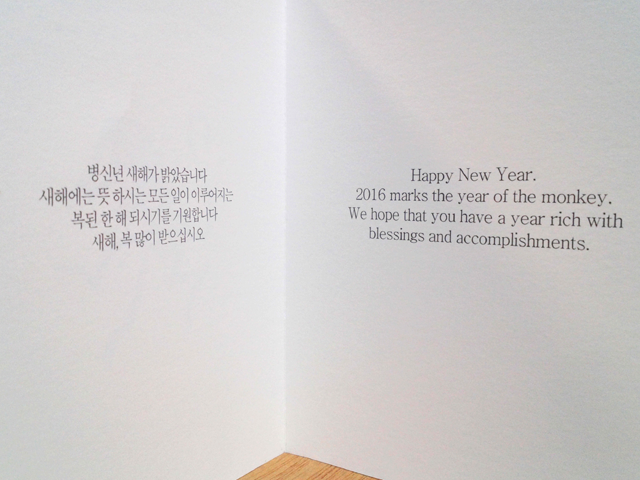 병신년 새해가 밝았습니다
새해에는 뜻 하시는 모든 일이 이루어지는
복된 한 해 되시기를 기원합니다
새해, 복 많이 받으십시오
Happy New Year.
2016 marks the year of the monkey.
We hope that you have a year rich with
blessings and accomplishments.